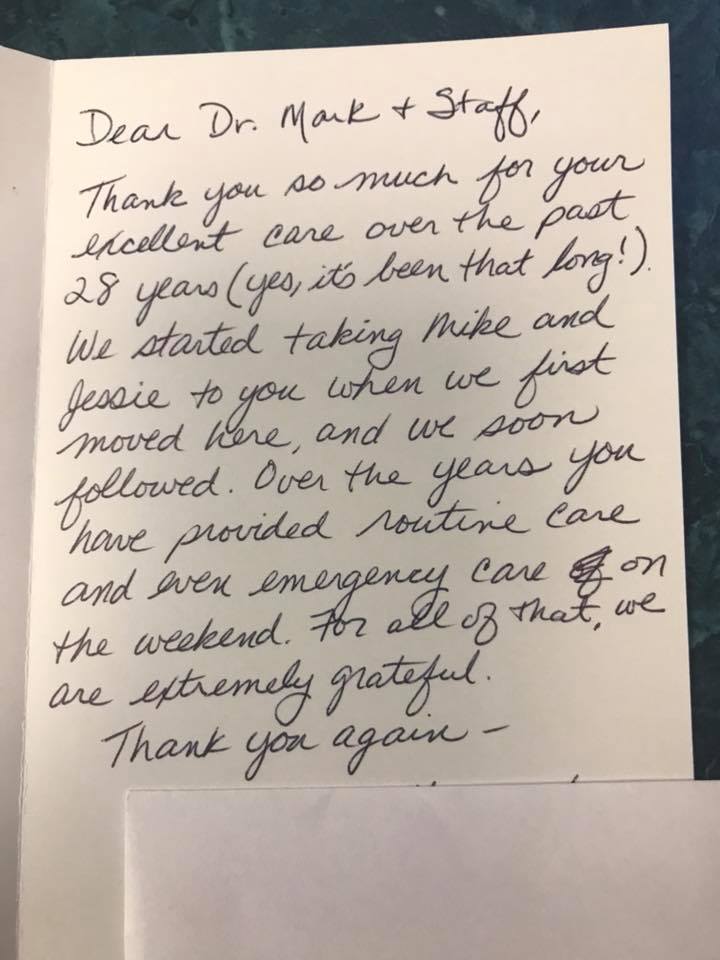 Dear Dr. Mark + Staff,
Thank you so much for your
excellent care over the past
28 years (yes, it's been that long!).
We started taking Mike and
Jessie to you when we first
moved here, and we soon
followed. Over the years you
have provided routine care
and even emergency care on
the weekend. For all of that, we
are extremely grateful.
Thank you again –